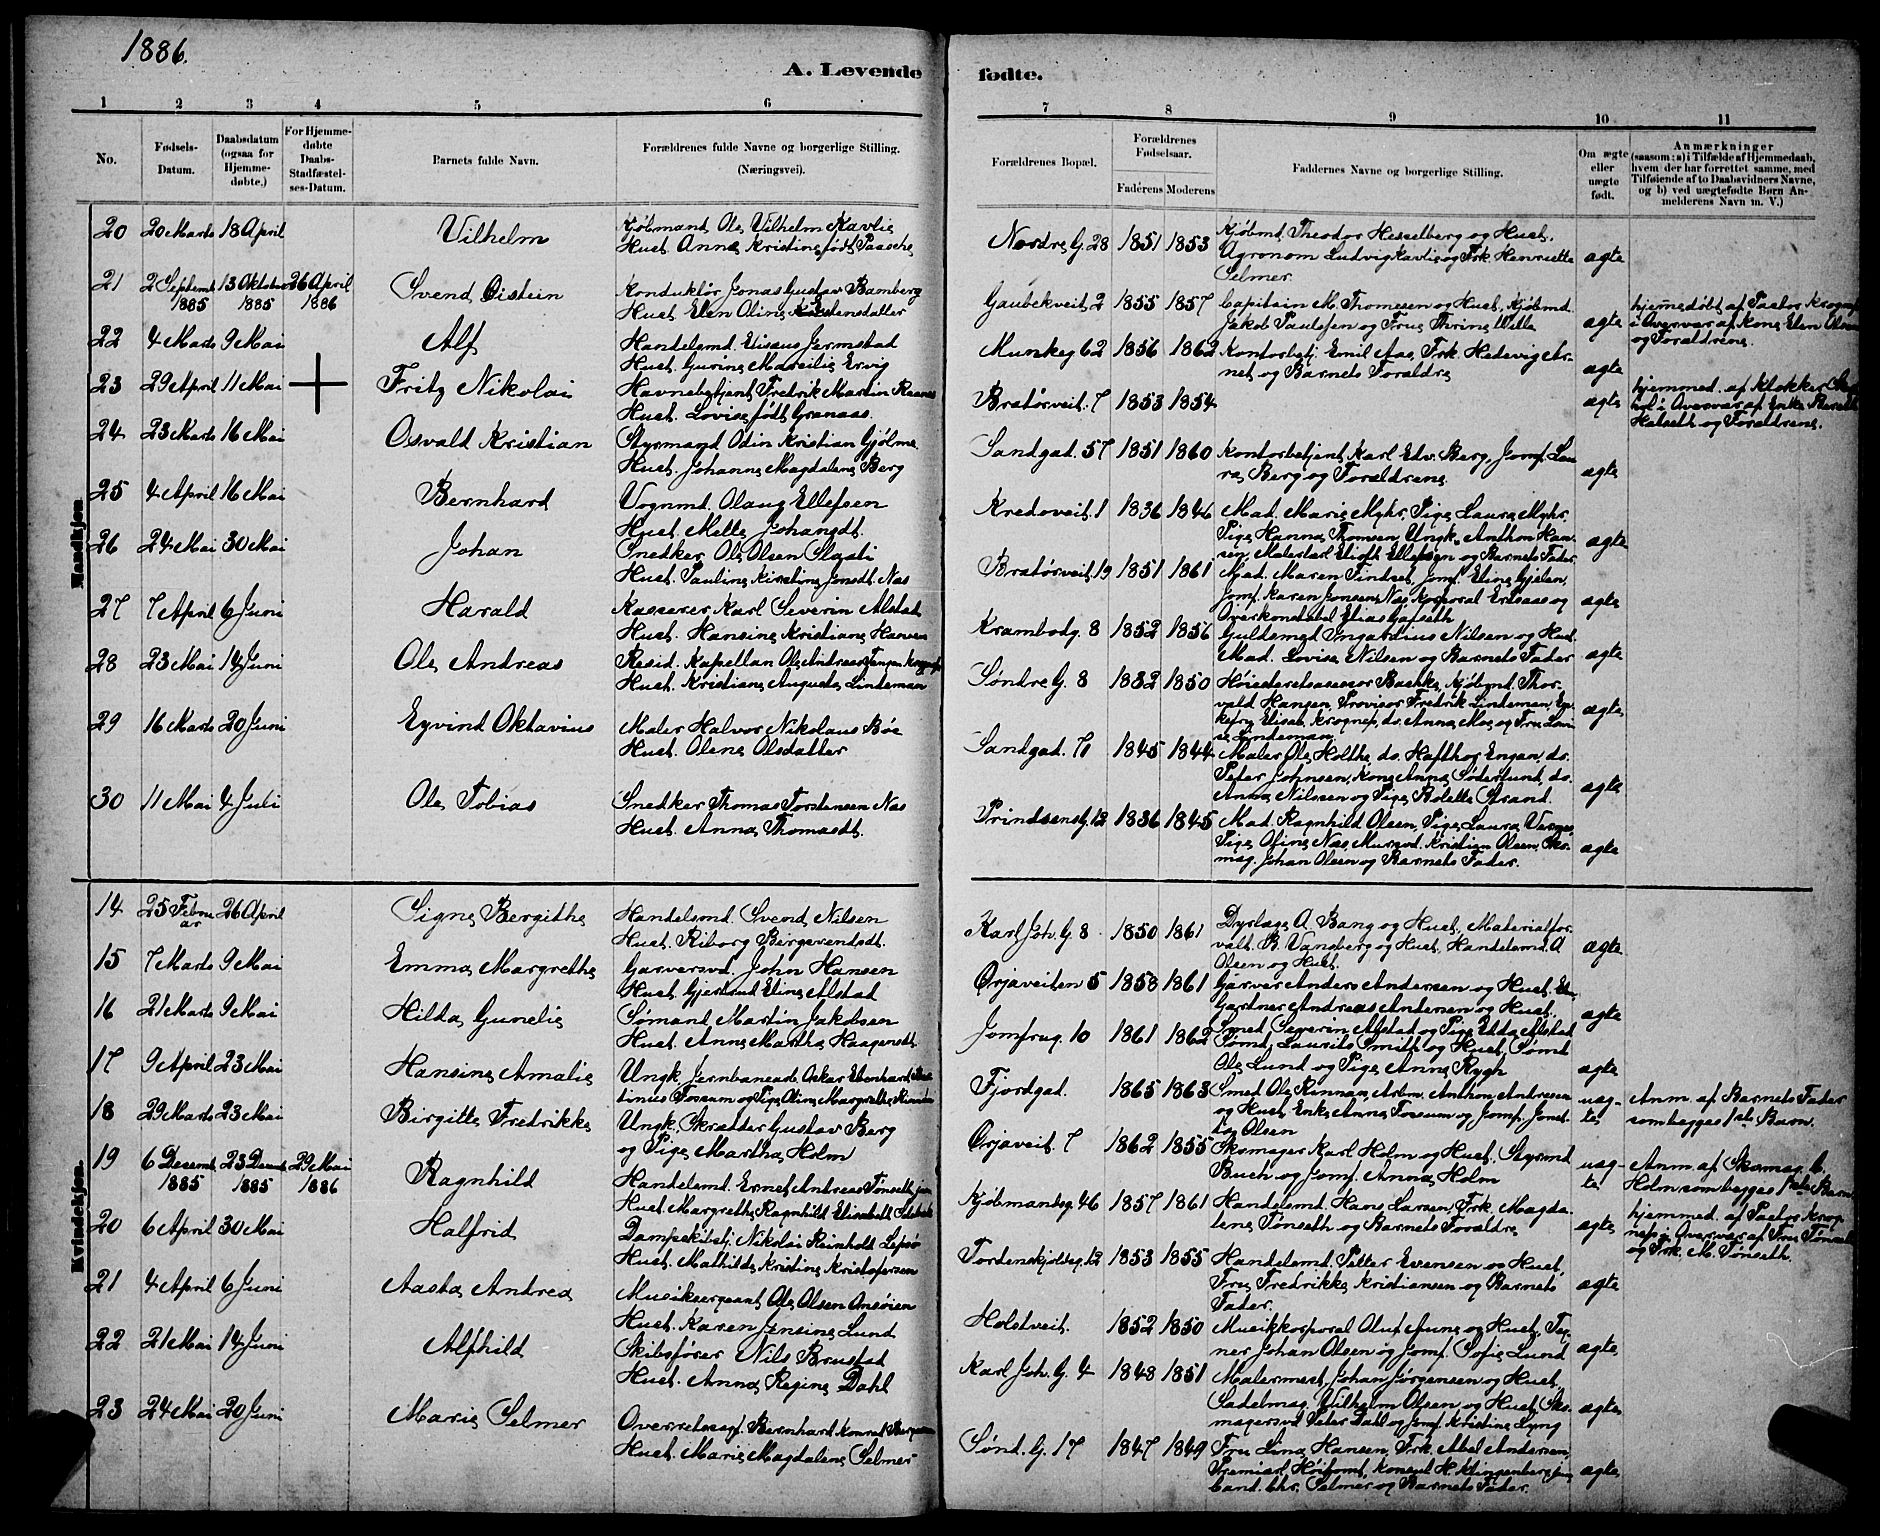 1886.
A. Levende fødte.
1 2 3 4 5 6 7 8 9 10 11
No.
Fødsels-Datum.
Daabsdatum (ogsaa for Hjemme-døbte.)
For Hjemme-døbte Daabs-Stadfæstel-ses-Datum.
Barnets fulde Navn.
Forældrenes fulde Navne og borgerlige Stilling. (Næringsvei).
Forældrenes Bopæl.
Forældrenes Fødselsaar.
Faderens Moderens
Faddernes Navne og borgerlige Stilling.
Om ægte eller uægte født.
Anmærkninger
(saasom: a) i Tilfælde af Hjemmedaab, hvem der har forrettet samme, med Tilføiende af to Daabsvidners Navne, og b) ved uægtefødte Børn Anmelderens Navn m. V.)
Mandkjøn
20 20 Marts 18 April Vilhelm Kjøbmand Ole Vilhelm Kavlie
Hust. Anna Kristine født Paasche
Nordre G. 28 1851 1853 Kjøbmd. Theodor Hesselberg og Hust.
Agronom Ludvig Kavlie og Frk. Henriette
Selmer ægte
21 2 Septemb 1885 13 Oktober 1885 26 April 1886 Svend Øistein Konduktør Jonas Gustav Bamberg
Hust. Elen Oline Kristensdatter
Gaubekveit 2 1855 1857 Capitain M. Thomesen og Hust. Kjøbmd.
Jakob Paulssen og Fru Thrine Wille ægte
hjemmedøbt af Pastor Krogness
i Overvær af Kone Elen Olsen
og Forældrene.
22 4 Marts 9 Mai Alf Handelsmd. Elisæus Jermstad
Hust. Gurine Mareilie Ervig
Munkeg 62 1856 1862 Kontorbetj. Emil Aas, Frk. Hedevig Ar-
net og Barnets Forældre ægte
23 29 April 11 Mai Fritz Nikolai Havnebetjent Fredrik Martin
Hust. Lovise født Granaas.
Bratørveit. 7 1853 1854 ægte
hjemmed. af Klokker
i Overvær af Enke
Halseth og Forældrene.
24 23 Marts 16 Mai Osvald Kristian Styrmand Odin Kristian Gjølme
Hust. Johanne Magdalene Berg
Sandgad. 57 1851 1860 Kontorbetjent Karl Edv. Berg, Jomf. Lau
ra Berg og Forældrene ægte
25 4 April 16 Mai Bernhard Vognmd. Olaug Ellefsen
Hust. Mette Johansdt.
Kredoveit. 1 1836 1846 Mad. Marie Myhr, Pige Laura Myhr.
Pige Hanna Thomsen Ungk. Anthon Han-
sen, Malerlærl. Elioth Ellefsen og Barnets Fader ægte
26 24 Mai 30 Mai Johan Snedker Ole Olsen
Hust. Pauline Kirstine Jensdt. Næs
Bratørveit. 19 1851 1861 Mad. Maren Tindset, Jomf. Eline Gjelen,
Jomf. Karen Jonsen Næs, Korporal Ertsaas og
Overkonstabel Elias Gafseth ægte
27 7 April 6 Juni Harald Kasserer Karl Severin Alstad
Hust. Hansine Kristiane Hansen
Krambodg. 8 1852 1856 Guldsmed Ingardius Nilsen og Hust.
Mad. Lovise Nilsen og Barnets Fader ægte
28 23 Mai 14 Juni Ole Andreas Resid. Kapellan Ole Andreas Tangen Krogness
Hust. Kristiane Augusta Lindeman
Søndre G. 8 1832 1850 Høiesteretsassessor Bachke, Kjøbmd. Thor-
vald Hansen, Provisor Fredrik Lindeman, En-
kefru Elisab. Krogness, do. Anna Moe og Fru Lovi
se Lindeman ægte
29 16 Marts 20 Juni Eyvind Oktavius Maler Halvor Nikolaus Bøe
Hust. Olene Olsdatter
Sandgad. 71 1845 1844 Maler Ole Holthe, do. Hafthor Engan, do.
Peter Johnsen, Kone Anna Søderlund, do.
Anna Nilssen og Pige Bolette Strand. ægte
30 11 Mai 4 Juli Ole Tobias Snedker Thomas Tordensen Næs
Hust. Anna Thomasdt.
Prindsensg. 12 1836 1845 Mad. Ragnhild Olsen, Pige Laura
Pige Ofine Næs, Mursvd. Kristian Olsen, Sko-
mag. Johan Olsen og Barnets Fader. ægte
Kvindekjøn.
14 25 Febru ar 26 April Signe Bergithe Handelsmd. Svend Nilsen
Hust. Riborg Birgevendsdt.
Karl Joh. G. 8 1850 1861 Dyrlæge A. Bang og Hust. Materialfor-
valt. B. Vansberg og Hust. Handelsmd. A
Olsen og Hust. ægte
15 7 Marts 9 Mai Emma Margrethe Garversvd. John Hansen
Hust. Gjertrud Eline Alstad
Ørjaveiten 5 1858 1861 Garver Anders Andersen og Hust.
Gartner Andreas Andersen og Hust.
Smed Severin Alstad og Pige Edda Alstad ægte
16 21 Marts 9 Mai Hilda Gunelie Sømand Martin Jakobsen
Hust. Anne Martha Haagensdt.
Jomfrug. 10 1861 1862 Sømd. Laurits Smith og Hust, Sømd
Ole Lund og Pige Anne Rygh ægte
17 9 April 23 Mai Hansine Amalie Ungk. Jernbanearb. Oskar Edenhard
tinius Fossum og Pige Oline Margrethe Rinnan
Fjordgad. 1865 1863 Smed Ole Rinnan, Arbm. Anthon Andresen
og Hust. Enke Anna Fossum og Jomf. Jonet-
ta Olsen uæg-te
Anm. af Barnets Fader
som begges 1ste Barn.
18 29 Marts 23 Mai Birgitte Fredrikke Ungk. Skrædder Gustav Berg
og Pige Martha Holm
Ørjaveit. 7 1862 1855 Skomager Karl Holm og Hust. Styrmd
Buch og Jomf. Anna Holm uæg-te
Anm. af Skomag. C.
Holm som begges 1ste Barn
19 6 Desemb 1885 23 Desemb 1885 29 Mai 1886 Ragnhild Handelsmd. Ernst Andreas Tønseth jun
Hust. Margrethe Ragnhild Elisabeth
Kjøbmandsg. 46 1857 1861 Handelsmd. Hans Larsen, Frk. Magda-
lene Tønseth og Barnets Forældre ægte
hjemmed. af Pastor Krog-
ness i Overvær af Fru Tønseth
og Frk. M. Tønseth.
20 6 April 30 Mai Halfrid Dampskibsbj. Nikolai Reinholt Lepsø
Hust. Mathilde Kristine Kristofersen
Tordenskjoldsg. 12 1853 1855 Handelsmd. Petter Evensen og Hust,
Fru Fredrikke Kristiansen og Barnets
Fader. ægte
21 4 April 6 Juni Aasta Andrea Musiksergeant Ole Olsen Ansøien
Hust. Karen Jensine Lund
Holstveit. 1852 1850 Musikkorporal Oluf Aune og Hust, Teg-
ner Johan Olsen og Jomf. Sofie Lund ægte
22 21 Mai 14 Juni Alfhild Skibsfører Nils Brustad
Hust. Anna Regine Dahl
Karl Joh. G. 4 1848 1851 Malermest. Johan Jørgensen og Hust.
Sadelmag. Vilhelm Olsen og Hust, Sko-
magersvd. Peter Dahl og Jomf. Kristine Lyng ægte
23 24 Mai 20 Juni Marie Selmer Overretssagf. Bernhard Konrad Bergersen
Hust. Marie Magdalene Selmer
Sønd. G. 17 1847 1849 Fru Lina Hansen, Frk. Abel Andersen
Premierl. Høifomt, Konsul H. Klingenberg jun
Cand. Chr. Selmer og Barnets Fader. ægte